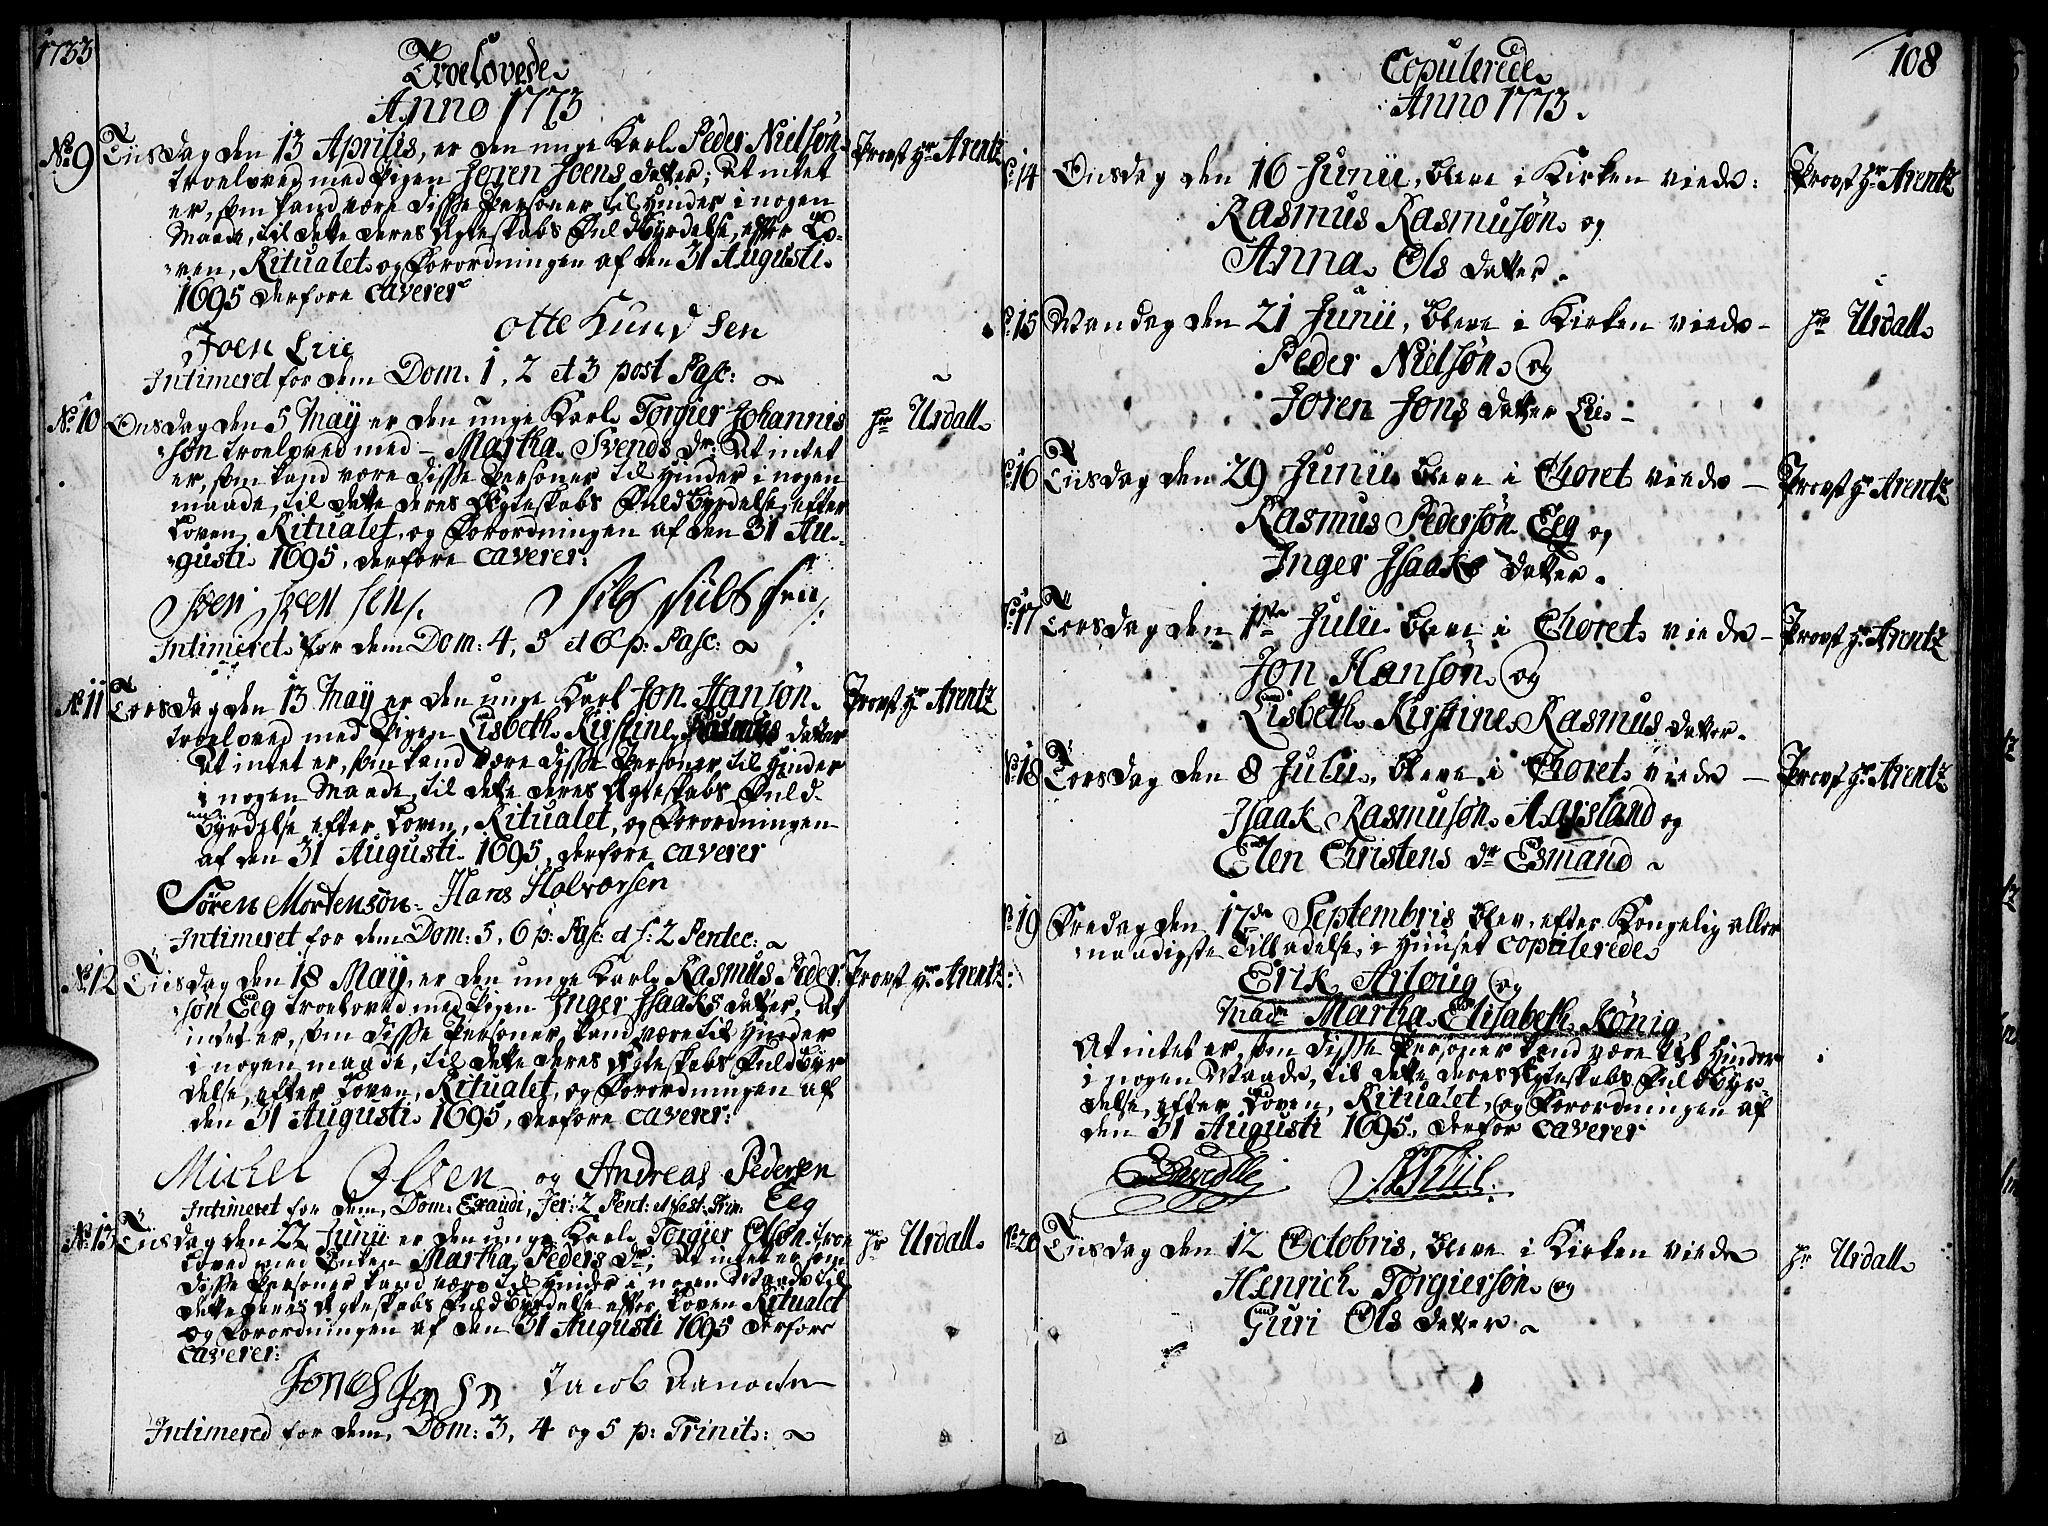 1733
Troelovede
Anno 1773
No 9 Tiisdag den 13 Aprilis, er den unge Karl Peder Nielsøn Provst Hr Arentz
troeloved med Pigen Joren Joens datter; At intet
er, som kand være disse Personer til Hinder i nogen
Maade, til dette deres Ægteskabs Fuldbyrdelse, efter Lo-
ven, Ritualet og Forordningen af den 31 Augusti
1695 derfore caverer
Joen Liie Otte Kund sen
Intimeret for dem Dom: 1, 2 et 3 post Pasc:
No 10 Onsdag den 5 May er den unge Karl Torgier Johannis Hr Urdall
søn troeloved med Martha Svends Dr: At intet
er, som kand være disse Personer til Hinder i nogen
maade, til dette deres Ægteskabs Fuldbyrdelse, efter
Loven, Ritualet, og Forordningen af den 31 Au-
gusti 1695, derfore caverer:
Intimeret for dem Dom: 4, 5 et 6 p: Pasc:
No 11 Torsdag den 13 May er den unge Karl Jon Hansøn Provst Hr Arentz
troeloved med Pigen Lisbeth Kirstine Rasmus datter
At intet er, som kand være disse Personer til Hinder
i nogen Maade, til dette deres Ægteskabs Fuld-
byrdelse efter Loven, Ritualet, og Forordningen
af den 31 Augusti 1695, derfore caverer
Søren Mortensøn Hans Halvorsen
Intimeret for dem Dom: 5, 6 p: Pasc: et f: 2 Pentec:
No 12 Tiisdag den 18 May, er den unge Karl Rasmus Peder Provst Hr Arentz
søn Eeg troeloved med Pigen Inger Isaaks datter, At
intet er, som disse Personer kand være til Hinder
i nogen maade, til dette deres Ægteskabs Fuldbyr
delse, efter Loven, Ritualet, og Forordningen af
den 31 Augusti 1695, derfore caverer:
Michel Olsen og Andreas Pedersen
Eeg
Intimeret for dem, Dom: Exaudi, Fer: 2 Pent: et Fest: Trin:
No 13 Tiisdag den 22 Junii er den unge Karl Torgier Olsøn troe Hr Urdall
loved med Enken Martha Peders Dr; At intet er som
disse Personer kand være til Hinder i nogen Maade til
dette deres Ægteskabs Fuldbyrdelse efter Loven Ritualet
og Forordningen af den 31 Augusti 1695 derfore
caverer:
Jacob
Intimered for dem, Dom: 3, 4 og 5 p: Trinit:
108
Copulerede
Anno 1773
No 14 Onsdag den 16 Junii, bleve i Kirken viede: Provst Hr Arentz
Rasmus Rasmusøn og
Anna Ols datter
No 15 Mandag den 21 Junii, bleve i Kirken viede Hr Urdall
Peder Nielsøn og
Joren Jons datter Lie
No 16 Tiisdag den 29 Junii bleve i Choret viede Provst Hr Arentz
Rasmus Pedersøn Eeg og
Inger Isaaks datter
No 17 Torsdag den 1ste Julii bleve i Choret viede Provst Hr Arentz
Jon Hansøn og
Lisbeth Kirstine Rasmus datter
No 18 Torsdag den 8 Julii, bleve i Choret viede Provst Hr Arentz
Isaak Rasmusøn Aarsland og
Elen Christens Dr Esmand
No 19 Fredag den 17de Septembris blev, efter Kongelig aller
naadigste Tilladelse, i Huuset copulerede
Erik Arloug og
Madme Martha Elisabeth König
At intet er, som disse Personer kand være til Hinder
i nogen Maade, til dette deres Ægteskabs Fuldbyr-
delse, efter Loven, Ritualet, og Forordningen af
den 31 Augusti 1695, derfor caverer
No 20 Tiisdag den 12 Octobris, bleve i Kirken viede Hr Urdall
Henrich Torgiersøn og
Guri Ols datter